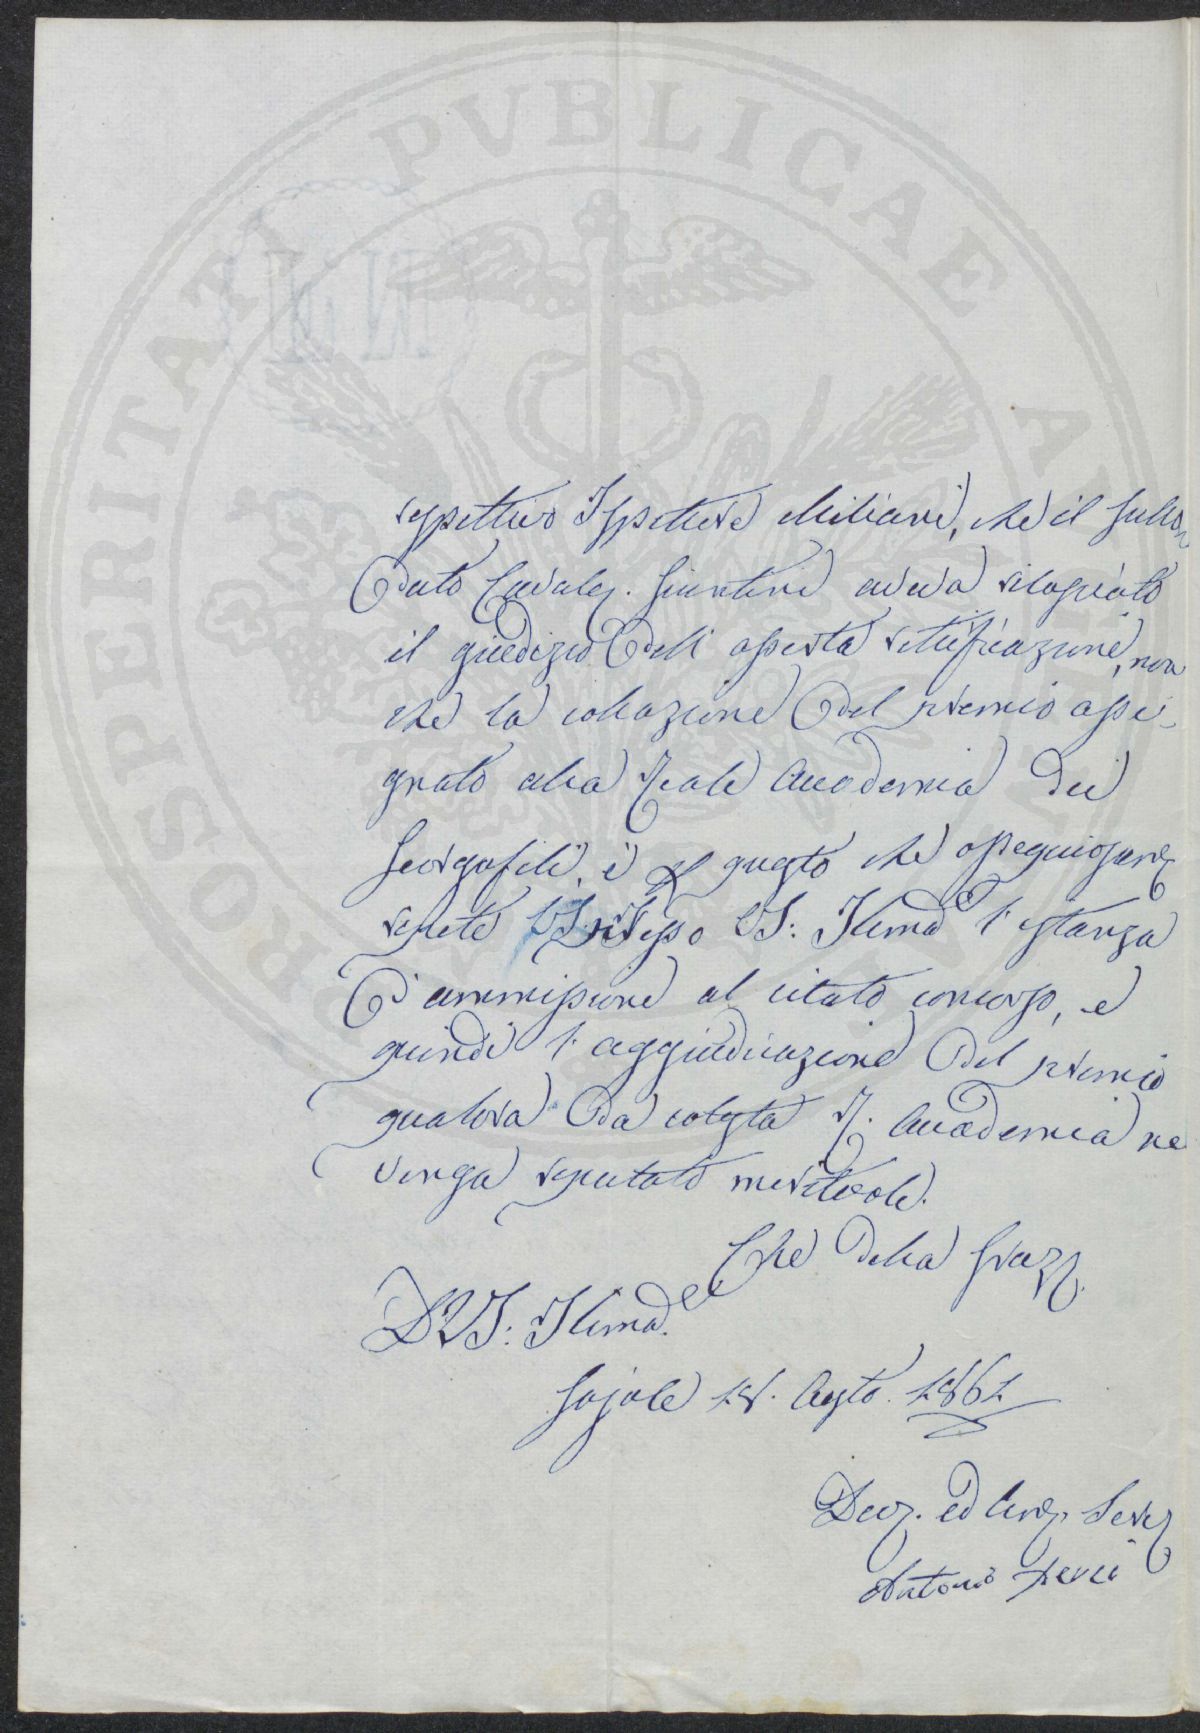 PROSPERITATI PUBLICAE AU
rispettivo Ispettore Miliani, che il sullo,,
dato Cavaler. Giuntini aveva rilasciato
il giudizio dell' asserta rettificazione, non
che la collazione del premio asse-
gnato alla Reale Accademia dei
Georgofili, è questo che ossequiosamte
ripete VS: Illma l' istanza
d' ammissione al citato concorso, e
quindi l' aggiudicazione del premio
qualora da cotesta R. Accademia ne
venga reputato meritevole.
Che della Graz.
D VS: Illma.
18. Agsto. 1861
Devo. ed Servo
Antonio